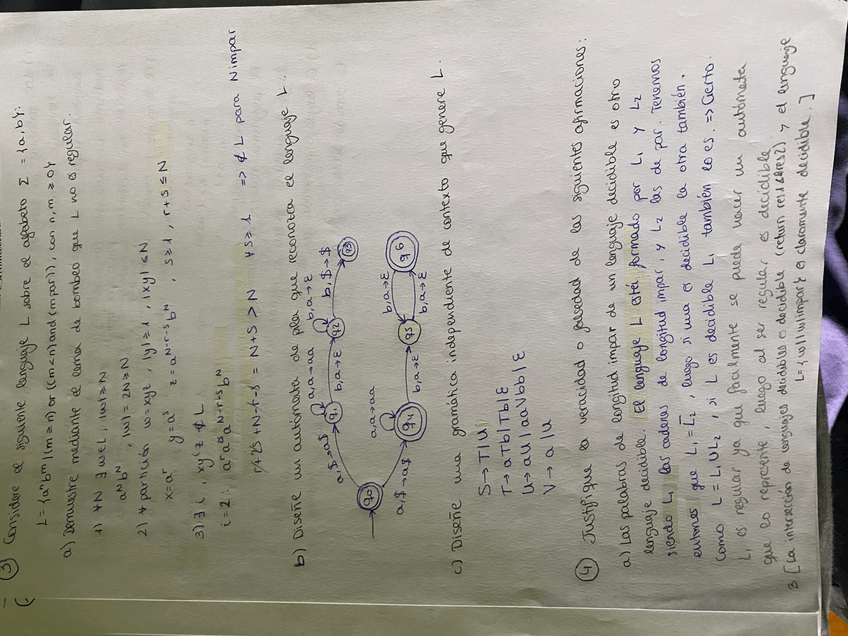 ③ Considere el siguiente lenguaje L sobre el alfabeto Σ = {a,b}:
L = {aⁿbᵐ | (m ≥ n) or ((m < n) and (m par)), con n, m ≥ 0}
a) Demuestre mediante el lema de bombeo que L no es regular.
1) ∀N ∃ w ∈ L, |w| ≥ N
aᴺbᴺ, |w| = 2N ≥ N
2) ∀ partición w = xyz, |y| ≥ 1, |xy| ≤ N
x = aʳ y = aˢ z = aᴺ⁻ʳ⁻ˢ bᴺ, s ≥ 1, r+s ≤ N
3) ∃ i, xyⁱz ∉ L
i = 2: aʳ a²ˢ aᴺ⁻ʳ⁻ˢ bᴺ
r + 2s + N - r - s = N + s > N ∀ s ≥ 1 ⇒ ∉ L para N impar
b) Diseñe un autómata de pila que reconozca el lenguaje L.
a,$→a$
a,a→aa
b,a→ε
b,a→ε
b,$→$
q0
q1
q2
q3
a,$→a$
a,a→aa
b,a→ε
b,a→ε
b,a→ε
q4
q5
q6
c) Diseñe una gramática independiente de contexto que genere L.
S → T|U
T → aTb|Tb|ε
U → aU|aaVbb|ε
V → a|U
④ Justifique la veracidad o falsedad de las siguientes afirmaciones:
a) Las palabras de longitud impar de un lenguaje decidible es otro
lenguaje decidible. El lenguaje L está formado por L₁ y L₂
siendo L₁ las cadenas de longitud impar, y L₂ las de par. Tenemos
entonces que L₁ = L̄₂, luego si una es decidible la otra también.
Como L = L₁ ∪ L₂, si L es decidible L₁ también lo es. ⇒ Cierto.
L₁ es regular ya que fácilmente se puede hacer un autómata
que lo represente, luego al ser regular es decidible
[La intersección de lenguajes decidibles es decidible (return res1 && res2) y el lenguaje
L = {w | |w| impar} es claramente decidible.]